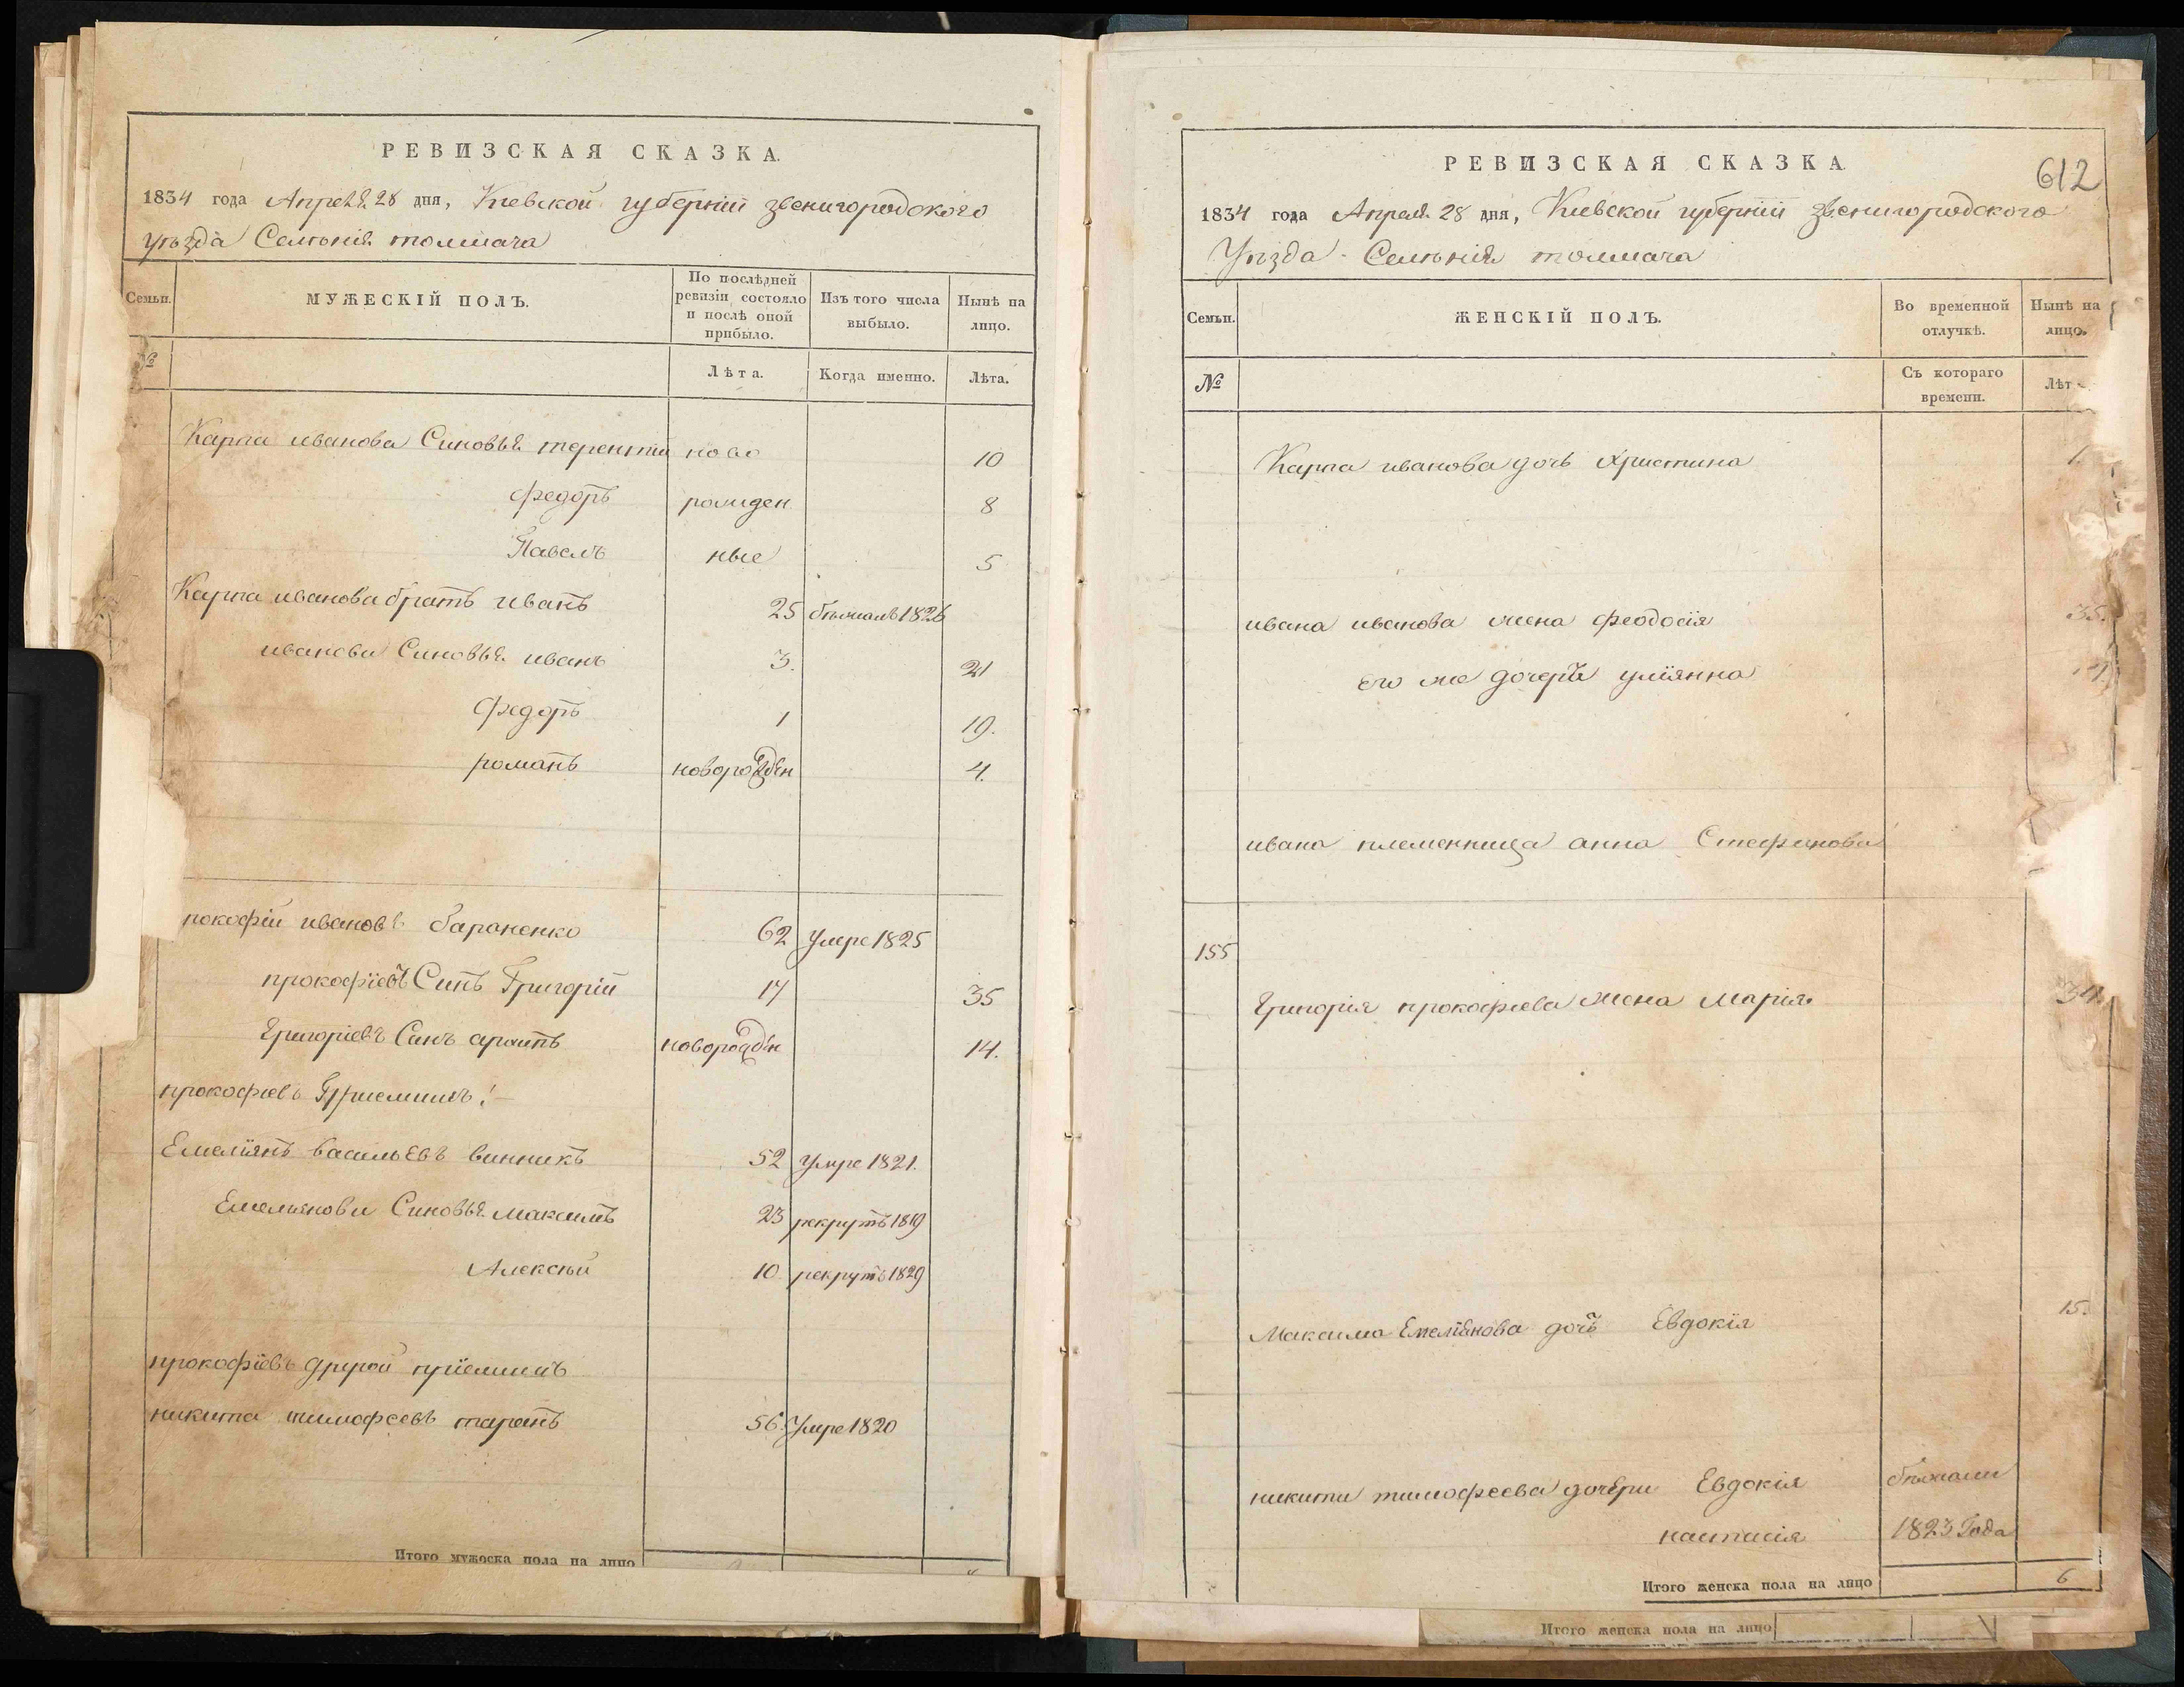 РЕВИЗСКАЯ СКАЗКА.
1834 года Апреля 28 дня, Киевской губернїи звенигородского
уѣзда Селенія толмача
Семьи.
МУЖЕСКІЙ ПОЛЪ.
По послѣдней ревизіи состояло и послѣ оной прибыло.
Изъ того числа выбыло.
Нынѣ на лицо.
№
Лѣта.
Когда именно.
Лѣта.
Карпа иванова Синовья терентий ново 10
федоръ рожден 8
Павелъ ные 5
Карпа иванова братъ иванъ 25 бѣжалъ 1826
иванови Синовья иванъ 3. 21
Федоръ 1 19.
романъ новорожден 4.
рокофїй ивановъ бараненко 62 умре 1825
прокофїевъ Синъ Григорїй 14 35
Григорїевъ Синъ новорожден 14.
прокофїевъ Прїемишъ:
Емелїянъ васильевъ винникъ 52 умре 1821.
Емелянови Синовья максимъ 23 рекрутъ 1819
Алексѣй 10 рекрутъ 1829
прокофїевъ другой прїемишъ
никита тимофеевъ таранъ 56 Умре 1820
Итого мужеска пола на лицо
612
РЕВИЗСКАЯ СКАЗКА
1834 года Апреля 28 дня, Киевской губернїи звенигородского
Уѣзда Селенія толмача
Семьи.
ЖЕНСКІЙ ПОЛЪ.
Во временной отлучкѣ.
Нынѣ на лицо.
№
Съ котораго времени.
Лѣт
Карпа иванова дочь Христина 1.
ивана иванова жена феодосїя 35.
его же дочерь улїянна
ивана племенница анна Стефанова
155
Григорїя прокофїева жена Марїя 34.
Максима Емелїянова дочь Евдокїя 15.
никити тимофеева дочери Евдокїя бѣжали
настасїя 1823 Года
Итого женска пола на лицо 6
Итого женска пола на лицо